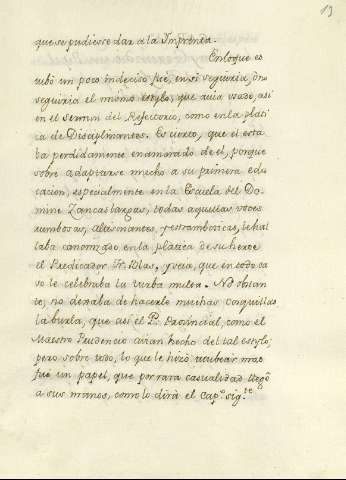 13
que se pudiesse dar a la Imprenta.
En lo que es
tubo un poco indeciso fue, en si seguiria, ò no
seguiria el mismo estylo, que avia usado, asi
en el sermon del Refectorio, como en la plati
ca de Disciplinantes. Es cierto, que el esta
ba perdidamente enamorado de el, porque
sobre adaptarse mucho a su primera edu
cacion, especialmente en la Escuela del Do
mine Zancas largas, todas aquellas voces
rumbosas, alatinantes, y estramboticas, le hal
laba canonizado en la platica de su heroe
el Predicador Fr. Blas, y veia, que en todo ca
so le celebraba la turba multa. No obstan
te, no dexaba de hacerle muchas cosquillas
la burla, que asi el P. Provincial, como el
Maestro Prudencio avian hecho del tal estylo,
pero sobre todo, lo que le hizo titubear mas
fue un papel, que por rara casualidad llegò
a sus manos, como lo dirà el Cap.º sig.te